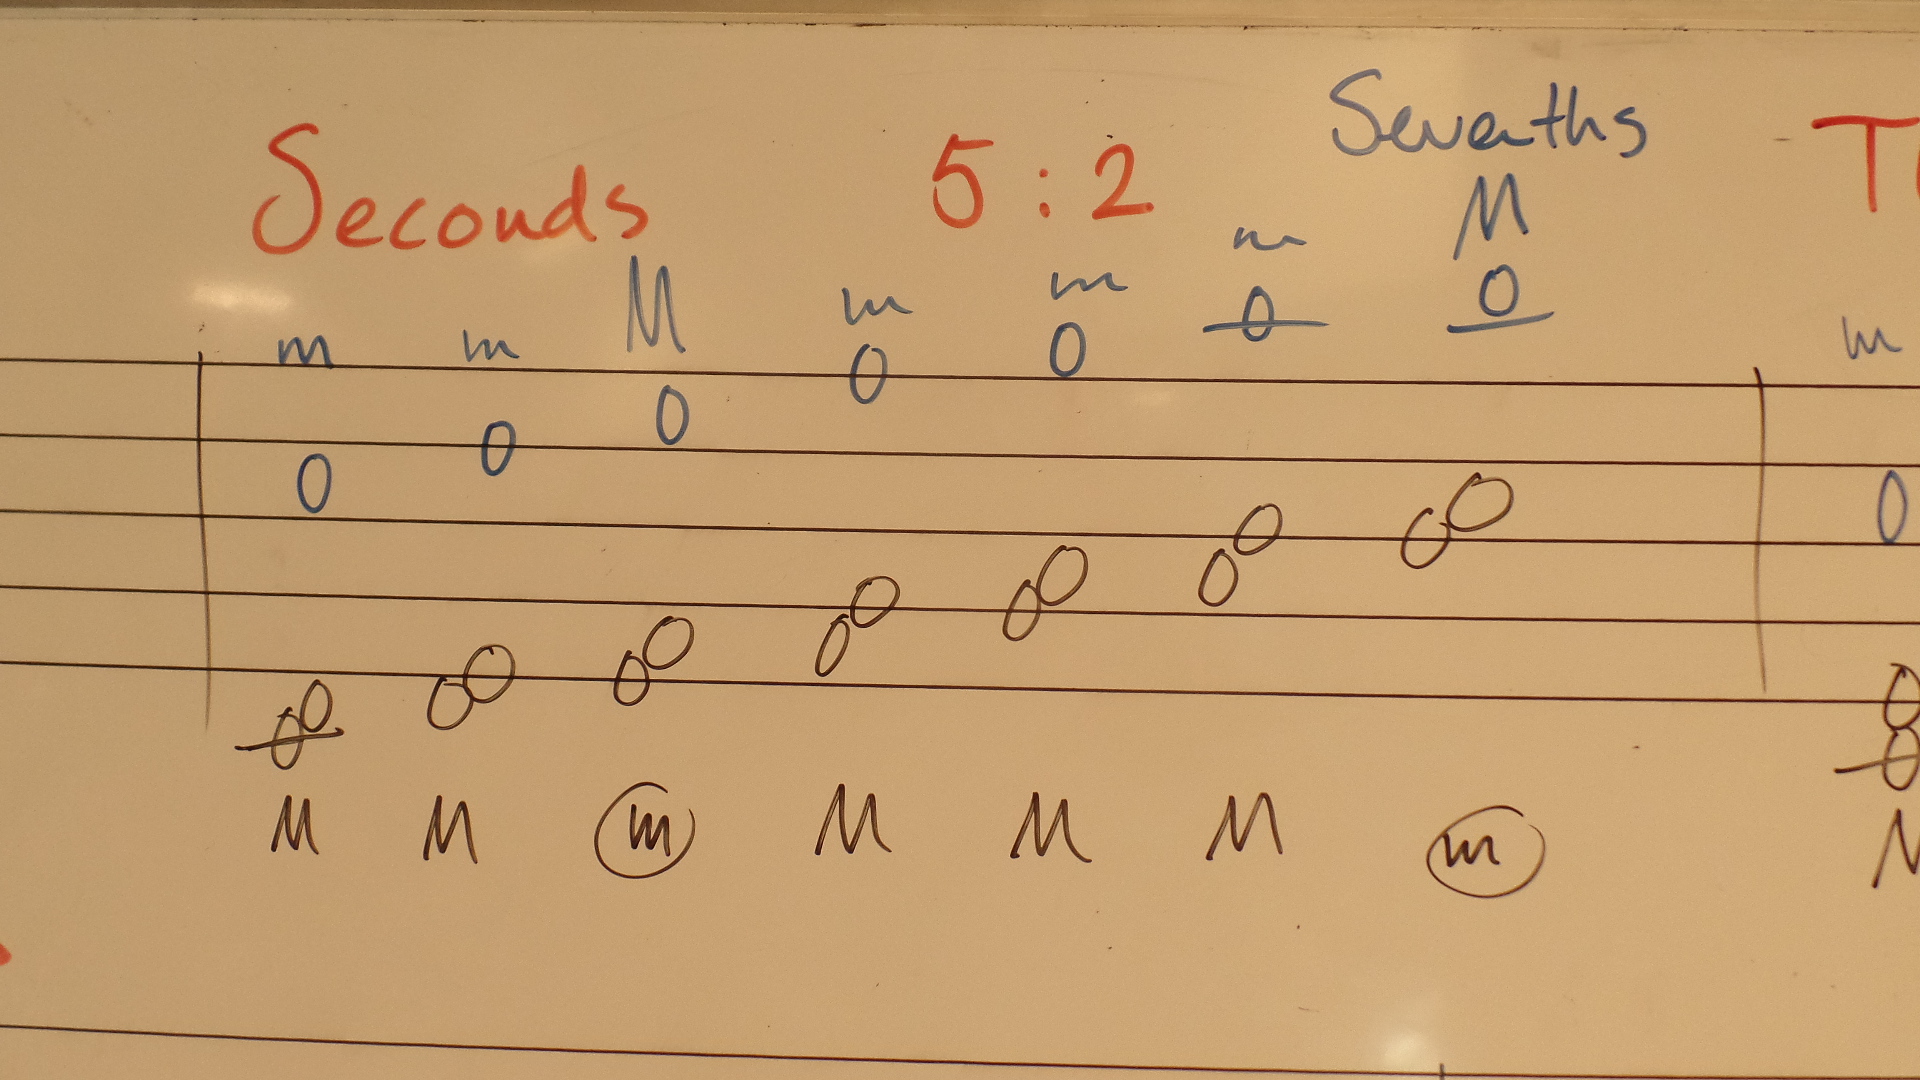 Sevenths
Seconds 5:2 T
m m M m m m M m
M M m M M M m M